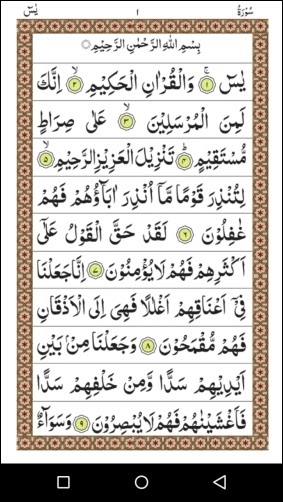 يٰسٓ ١ سُوْرَةُ
بِسْمِ اللّٰهِ الرَّحْمٰنِ الرَّحِيْمِ
يٰسٓ ۚ﴿١﴾ وَالْقُرْاٰنِ الْحَكِيْمِ ۙ﴿٢﴾ اِنَّكَ
لَمِنَ الْمُرْسَلِيْنَ ۙ﴿٣﴾ عَلٰى صِرَاطٍ
مُّسْتَقِيْمٍ ؕ﴿٤﴾ تَنْزِيْلَ الْعَزِيْزِ الرَّحِيْمِ ۙ﴿٥﴾
لِتُنْذِرَ قَوْمًا مَّاۤ اُنْذِرَ اٰبَآؤُهُمْ فَهُمْ
غٰفِلُوْنَ ﴿٦﴾ لَقَدْ حَقَّ الْقَوْلُ عَلٰۤى
اَكْثَرِهِمْ فَهُمْ لَا يُؤْمِنُوْنَ ﴿٧﴾ اِنَّا جَعَلْنَا
فِيْۤ اَعْنَاقِهِمْ اَغْلٰلًا فَهِىَ اِلَى الْاَذْقَانِ
فَهُمْ مُّقْمَحُوْنَ ﴿٨﴾ وَجَعَلْنَا مِنْۢ بَيْنِ
اَيْدِيْهِمْ سَدًّا وَّمِنْ خَلْفِهِمْ سَدًّا
فَاَغْشَيْنٰهُمْ فَهُمْ لَا يُبْصِرُوْنَ ﴿٩﴾ وَسَوَآءٌ